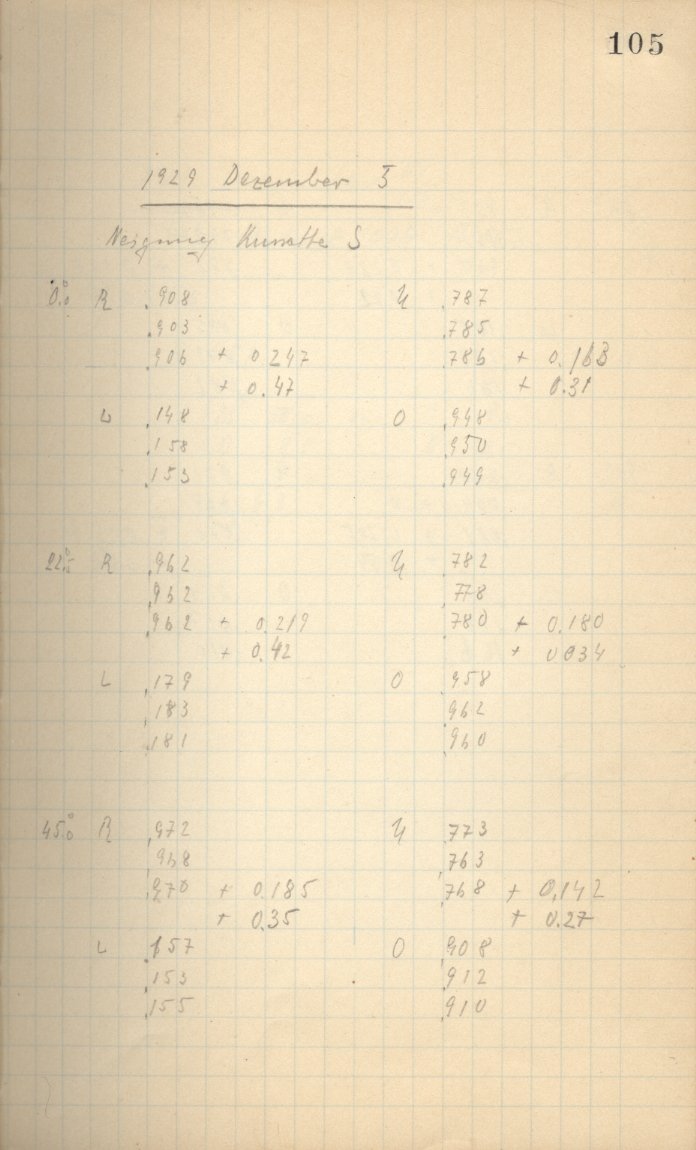 105
1929 Dezember 5
Neigung Kunatta S
0°.0 R .908 U .787
.903 .785
.906 + 0.247 .786 + 0.163
+ 0.47 + 0.31
L .148 O .948
.158 .950
.153 .949
22°.5 R .962 U .782
.962 .778
.962 + 0.219 .780 + 0.180
+ 0.42 + 0.034
L .179 O .958
.183 .962
.181 .960
45°.0 R .972 U .773
.968 .763
.970 + 0.185 .768 + 0.142
+ 0.35 + 0.27
L .157 O .908
.153 .912
.155 .910